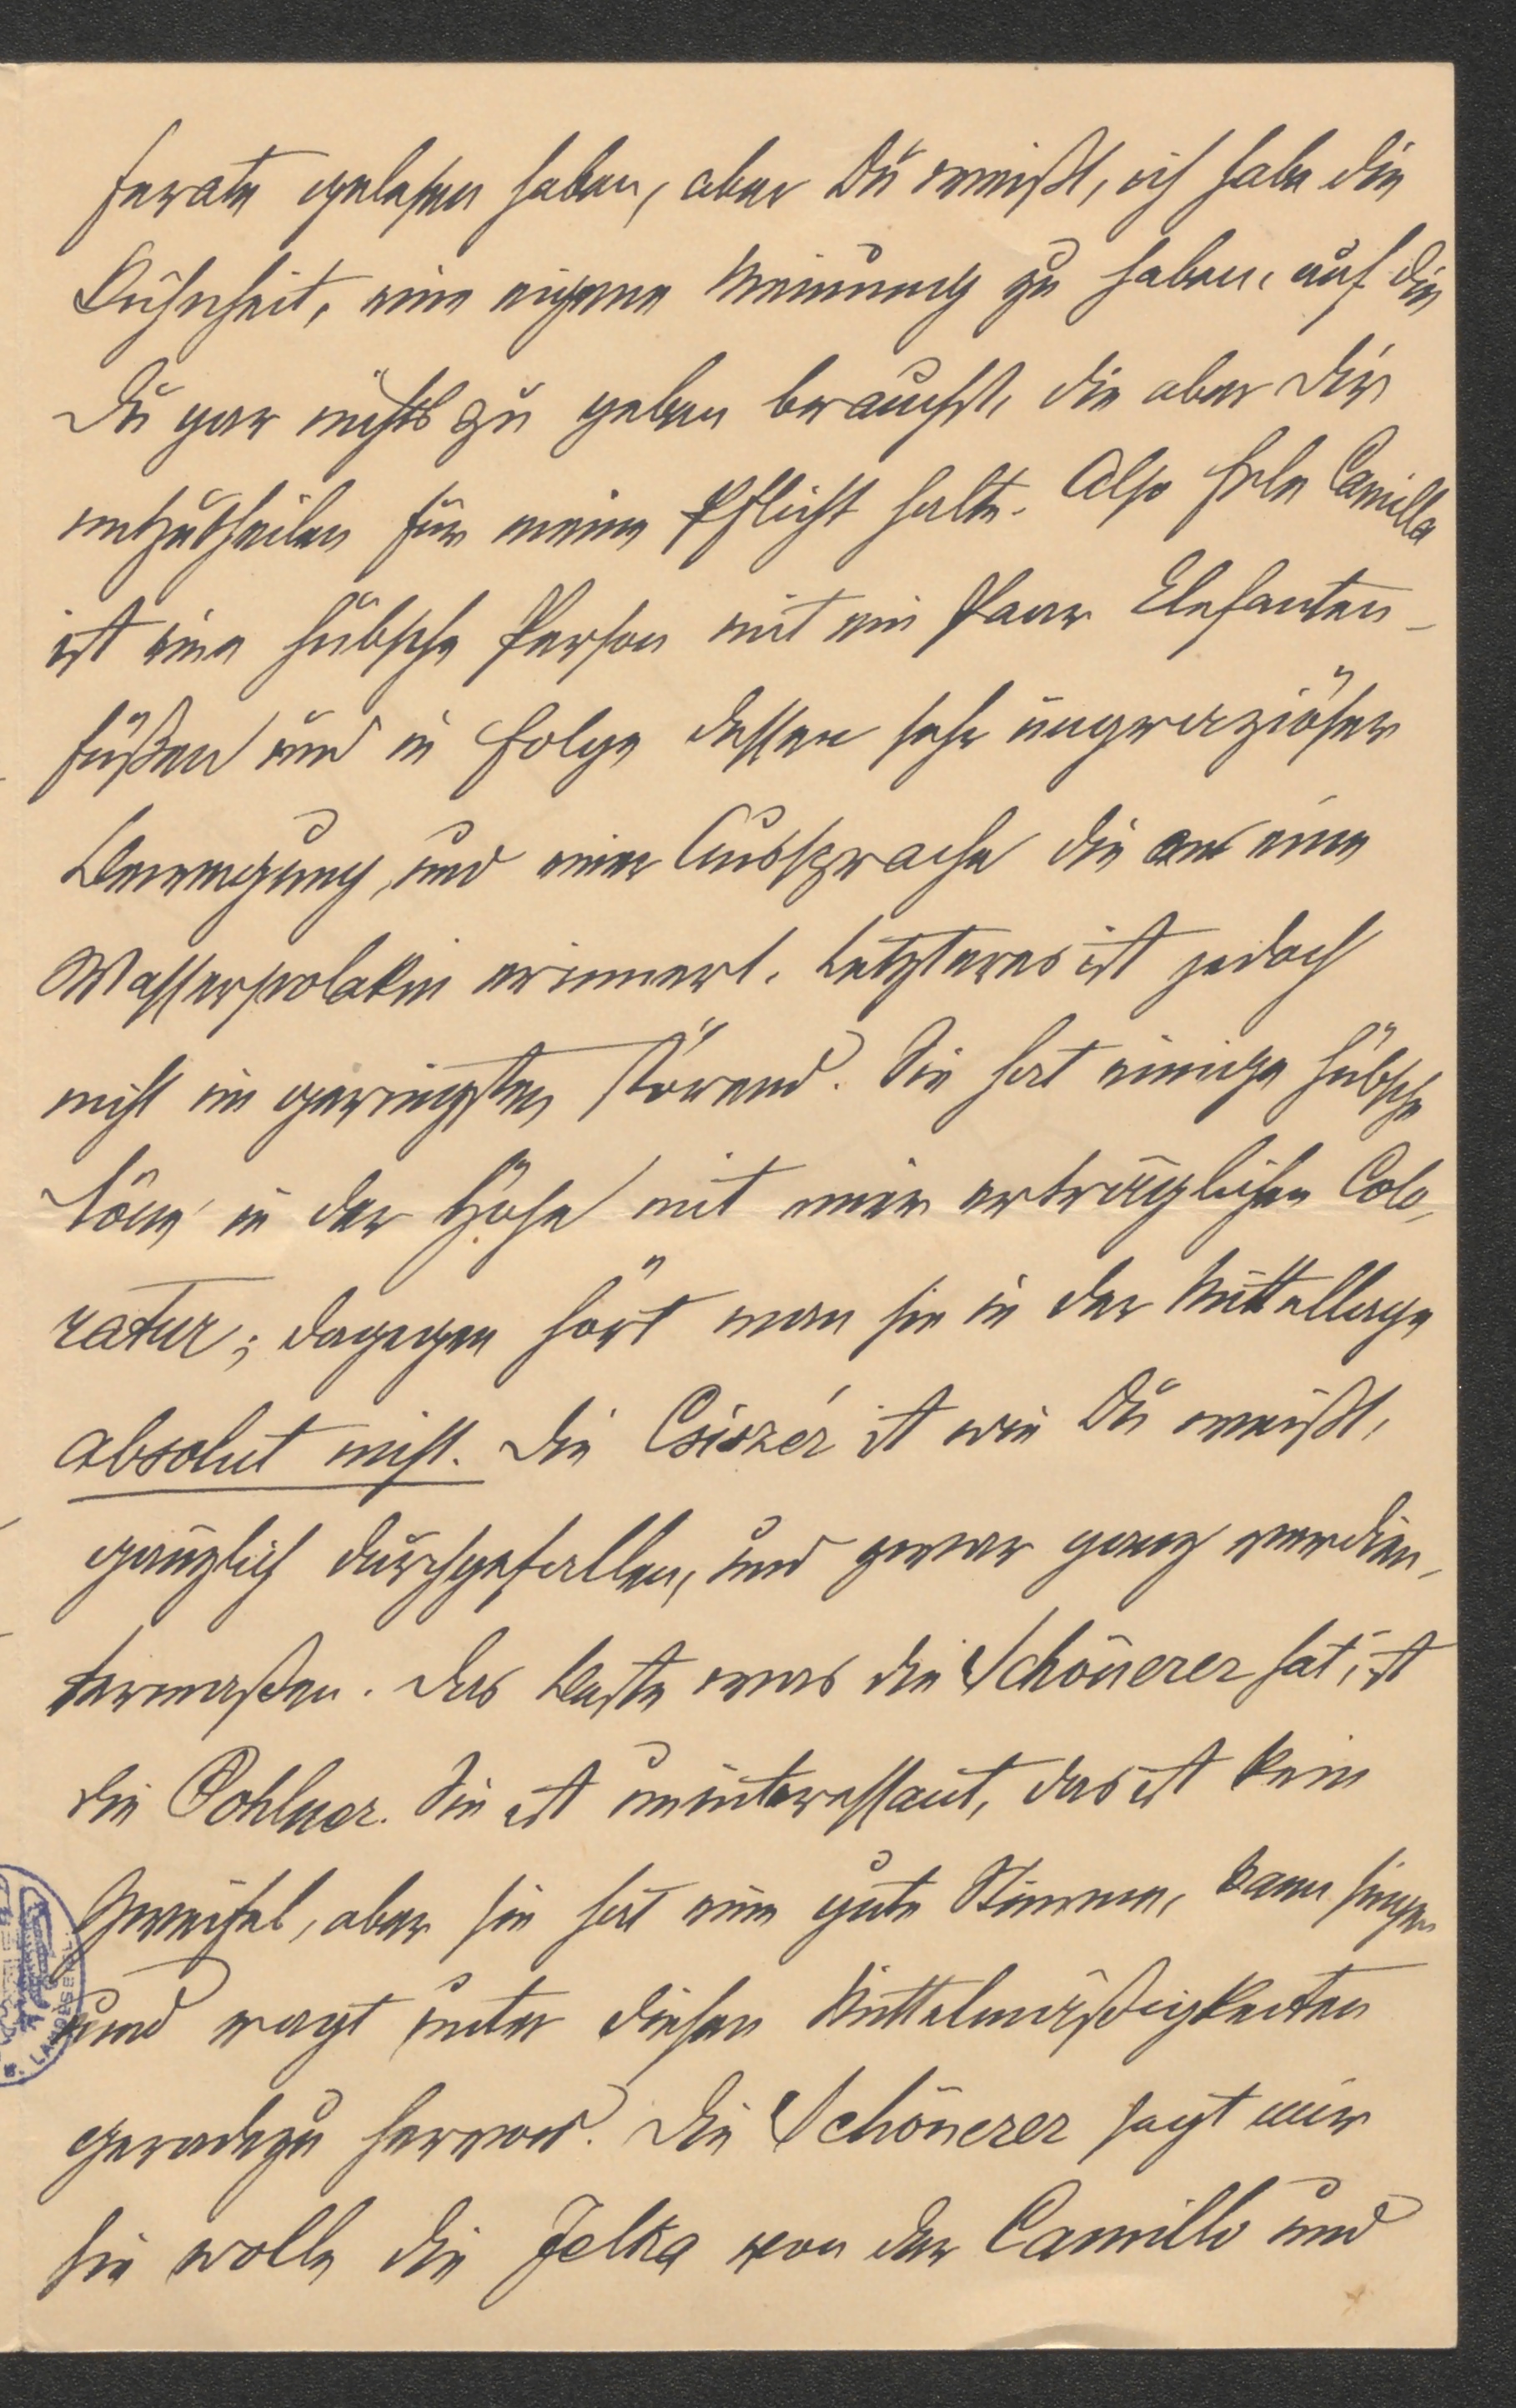 ferate gelesen haben, aber Du weißt, ich habe die
Kühnheit, eine eigene Meinung zu haben, auf die
Du gar nichts zu geben brauchst, die aber Dir
mitzutheilen für meine Pflicht halte. Also Frln Camilla
ist eine hübsche Person mit ein Paar Elefanten-
füßen und in Folge dessen sehr ungraziöser
Bewegung, und einer Aussprache die an eine
Wasserpolakin erinnert. Letzteres ist jedoch
nicht im geringsten störend. Sie hat einige hübsche
Töne in der Höhe mit einer erträglichen Colo-
ratur; dagegen hört man sie in der Mittellage
absolut nicht. Die Csiszér ist wie Du weißt,
gänzlich durchgefallen, und zwar ganz verdien-
termaßen. Das Beste was die Schönerer hat, ist
die Pohlner. Sie ist uninteressant, das ist kein
Zweifel, aber sie hat eine gute Stimme, kann singen
und ragt unter diesen Mittelmäßigkeiten
geradezu hervor. Die Schönerer sagt mir
sie wolle die Jelka von der Camilla und
LANDESBIBL.